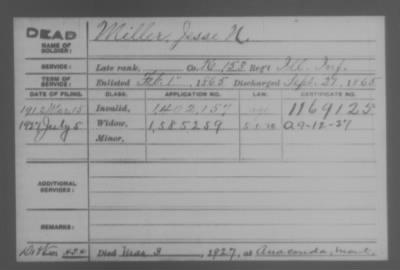 DEAD
NAME OF SOLDIER: Miller, Jesse N.
SERVICE: Late rank, Co. K, 153 Reg't Ill. Inf.
TERM OF SERVICE: Enlisted Feb. 1, 1865 Discharged Sept. 21, 1865
DATE OF FILING. CLASS. APPLICATION NO. LAW. CERTIFICATE NO.
1912 Mar 15 Invalid, 1,402,157 1169125
1927 July 5 Widow, 1,585259 5-1-20 A 9-12-27
Minor,
ADDITIONAL SERVICES:
REMARKS:
Died Mar 3, 1927, at Anaconda, Mont.